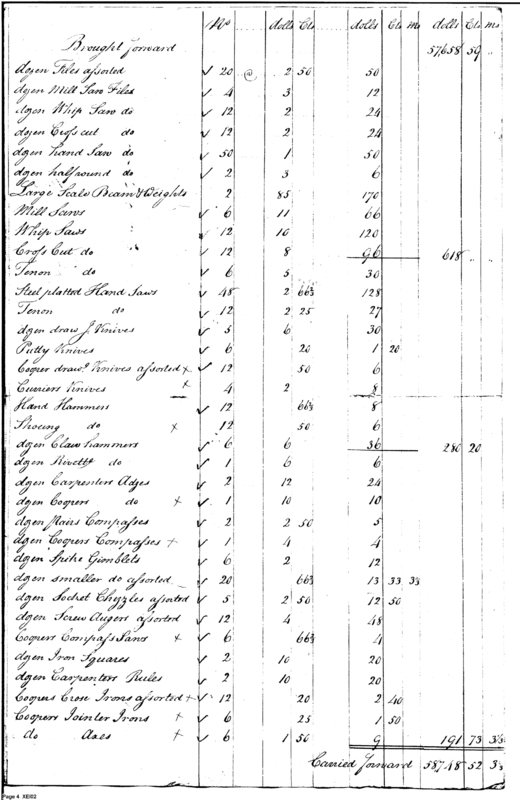 No dolls Cts dolls Cts ms dolls Cts ms
Brought forward 57,658 59 ..
dozen Files assorted ✓ 20 @ 2 50 50
dozen Mill Saw Files ✓ 4 3 12
dozen Whip Saw do ✓ 12 2 24
dozen Cross cut do ✓ 12 2 24
dozen hand Saw do ✓ 50 1 50
dozen half round do ✓ 2 3 6
Large Scale Beam & Weights 2 85 170
Mill Saws ✓ 6 11 66
Whip Saws 12 10 120
Cross Cut do ✓ 12 8 96 618 .. ..
Tenon do ✓ 6 5 30
Steel platted Hand Saws ✓ 48 2 66⅔ 128
Tenon do ✓ 12 2 25 27
dozen draw g Knives ✓ 5 6 30
Putty Knives ✓ 6 20 1 20
Cooper drawg Knives assorted x ✓ 12 50 6
Curriers Knives x 4 2 8
Hand Hammers ✓ 12 66⅔ 8
Shoeing do x ✓ 12 50 6
dozen Claw hammers ✓ 6 6 36 280 20
dozen Rivettg do ✓ 1 6 6
dozen Carpenters Adzes ✓ 2 12 24
dozen Coopers do x ✓ 1 10 10
dozen pairs Compasses ✓ 2 2 50 5
dozen Coopers Compasses + ✓ 1 4 4
dozen Spike Gimblets ✓ 6 2 12
dozen smaller do assorted ✓ 20 66⅔ 13 33 33
dozen Socket Chyzles assorted ✓ 5 2 50 12 50
dozen Screw Augers assorted ✓ 12 4 48
Coopers Compass Saws x ✓ 6 66⅔ 4
dozen Iron Squares ✓ 2 10 20
dozen Carpenters Rules ✓ 2 10 20
Coopers Croze Irons assorted + ✓ 12 20 2 40
Coopers Jointer Irons x ✓ 6 25 1 50
do Axes + ✓ 6 1 50 9 191 73 33
Carried forward 58748 52 33
Page 4 XEI02